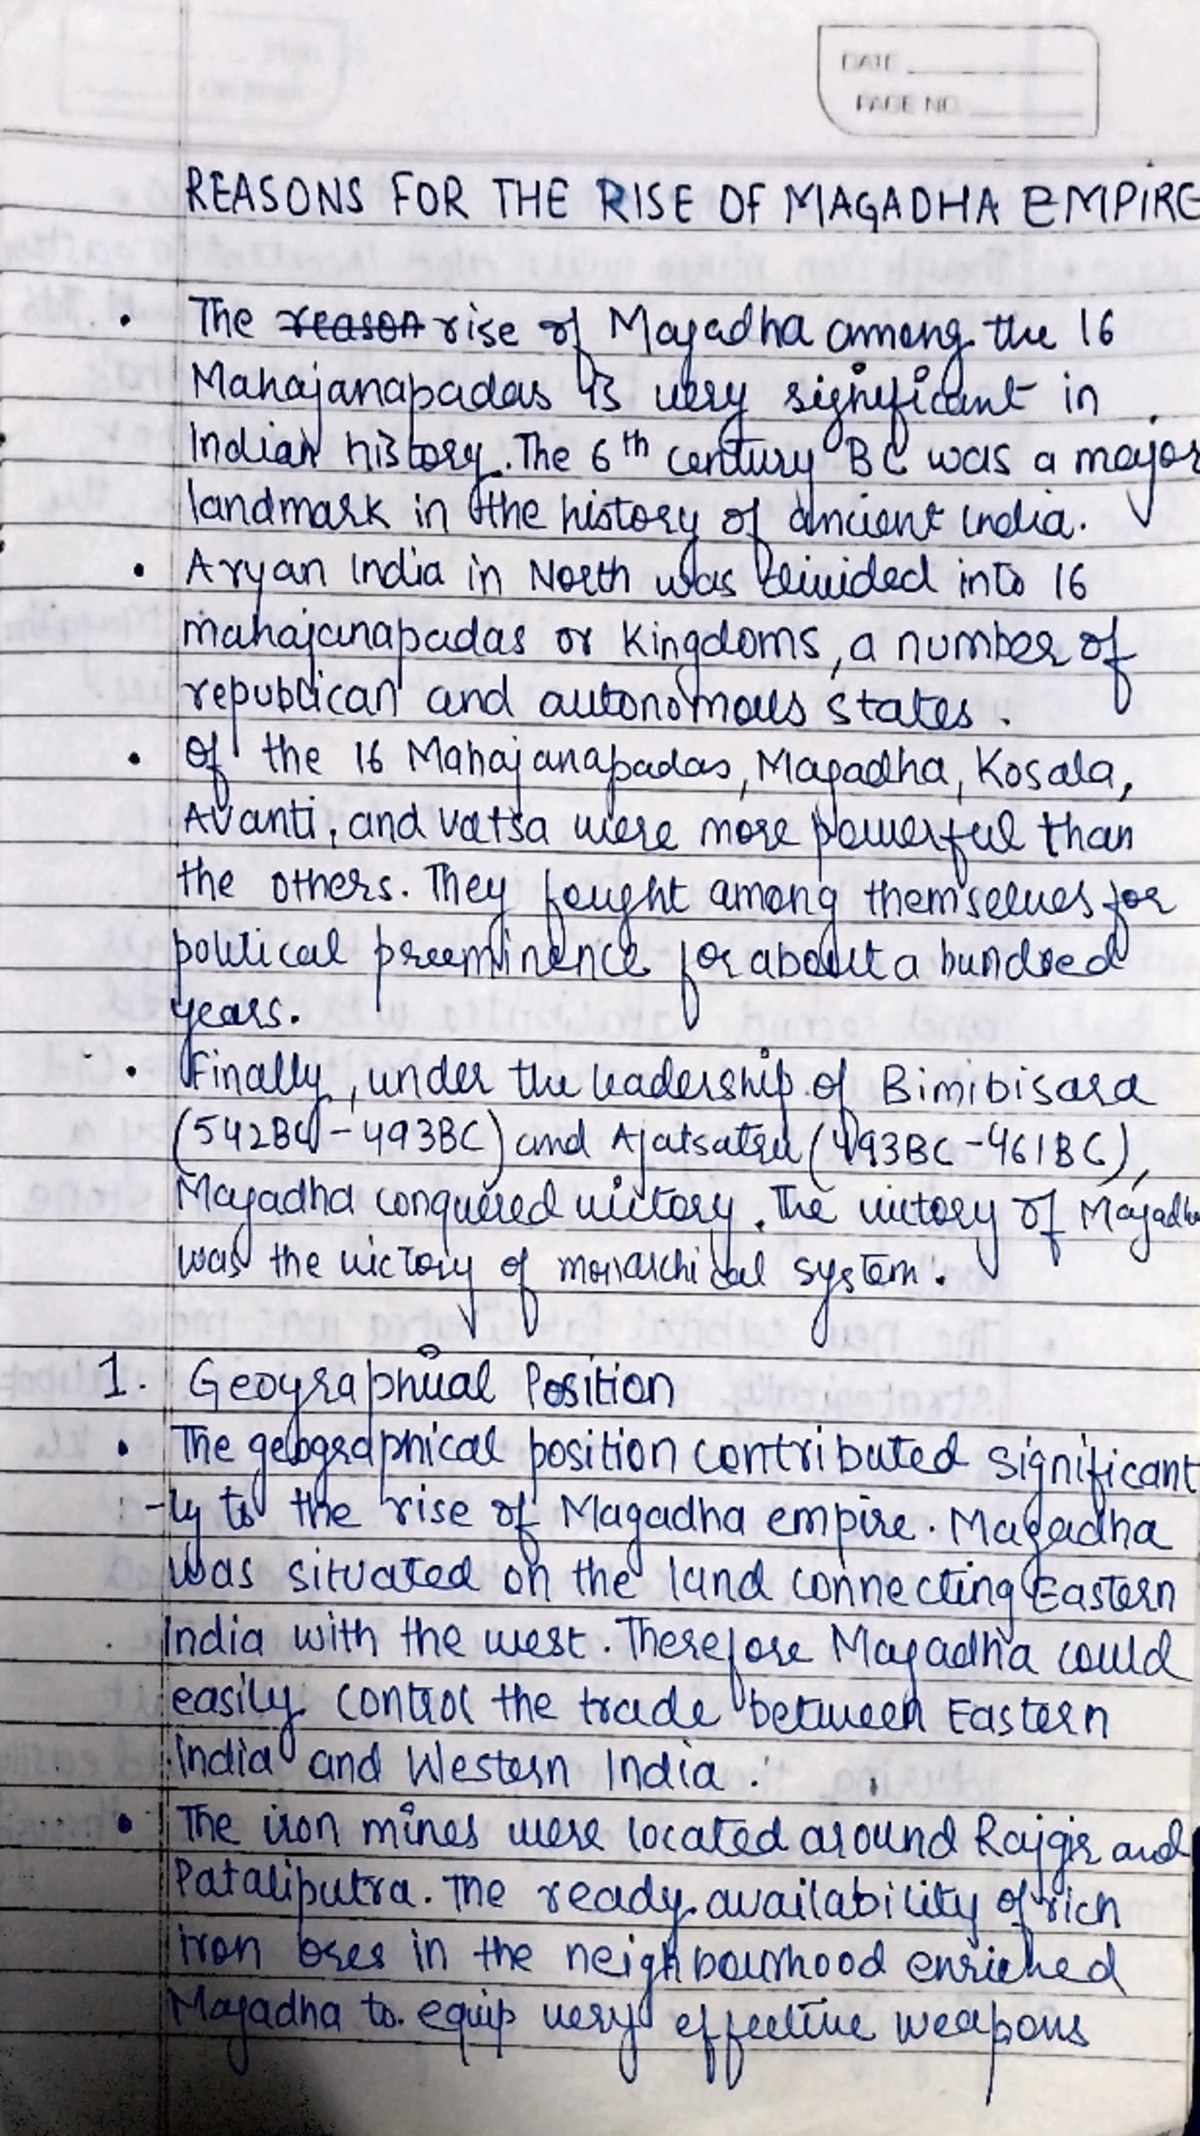 DATE
PAGE NO.
REASONS FOR THE RISE OF MAGADHA EMPIRE
• The reason rise of Magadha among the 16
Mahajanapadas is very significant in
Indian history. The 6th century BC was a major
landmark in the history of ancient India.
• Aryan India in North was divided into 16
mahajanapadas or kingdoms, a number of
republican and autonomous states.
• Of the 16 Mahajanapadas, Magadha, Kosala,
Avanti, and Vatsa were more powerful than
the others. They fought among themselves for
political preeminence for about a hundred
years.
• Finally, under the leadership of Bimibisara
(542BC - 493BC) and Ajatsatru (493BC-461BC),
Magadha conquered victory. The victory of Magadha
was the victory of monarchical system.
1. Geographical Position
• The geographical position contributed significant
-ly to the rise of Magadha empire. Magadha
was situated on the land connecting Eastern
India with the west. Therefore Magadha could
easily control the trade between Eastern
India and Western India.
• The iron mines were located around Rajgir and
Pataliputra. The ready availability of rich
iron ores in the neighbourhood enriched
Magadha to equip very effective weapons